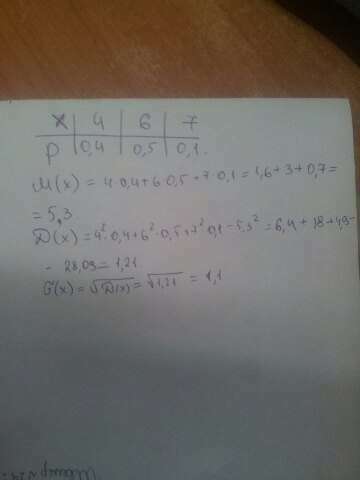 X 4 6 7
P 0,4 0,5 0,1.
M(x) = 4·0,4+6·0,5+7·0,1=1,6+3+0,7=
= 5,3
D(x)=4²·0,4+6²·0,5+7²·0,1-5,3²=6,4+18+4,9-
- 28,09=1,21
G(x)=√D(x)=√1,21 = 1,1